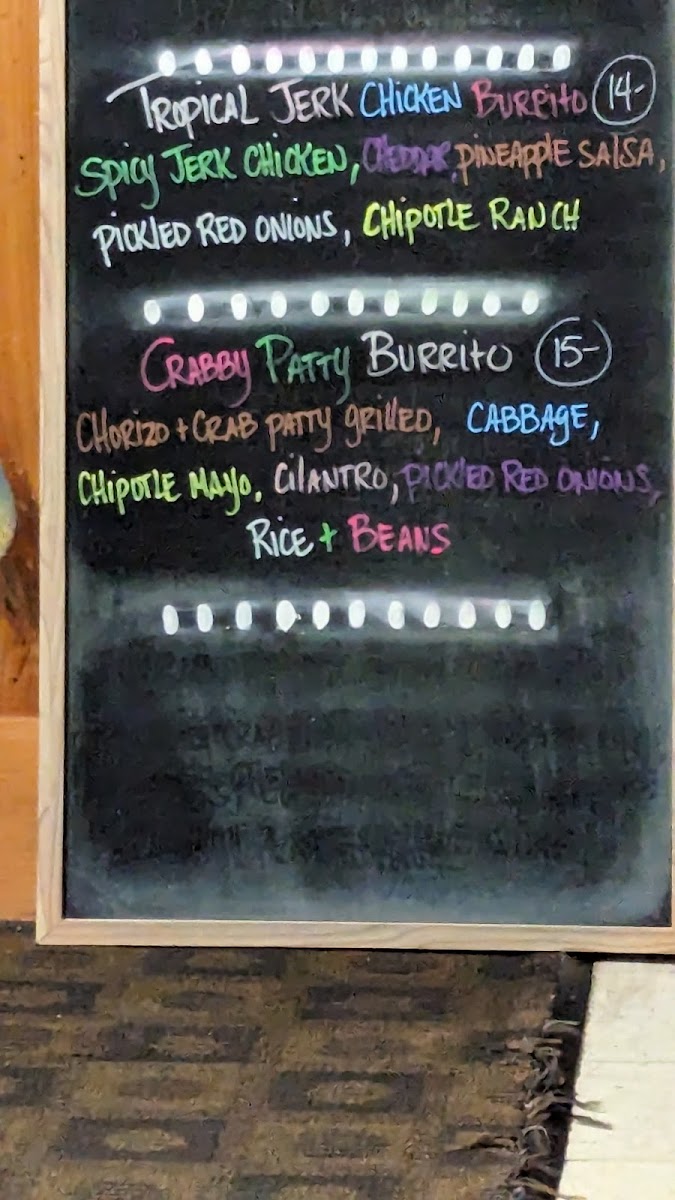 Tropical Jerk Chicken Burrito 14-
Spicy Jerk Chicken, Cheddar, Pineapple Salsa,
Pickled Red Onions, Chipotle Ranch
Crabby Patty Burrito 15-
Chorizo + Crab Patty grilled, Cabbage,
Chipotle Mayo, Cilantro, Pickled Red Onions,
Rice + Beans